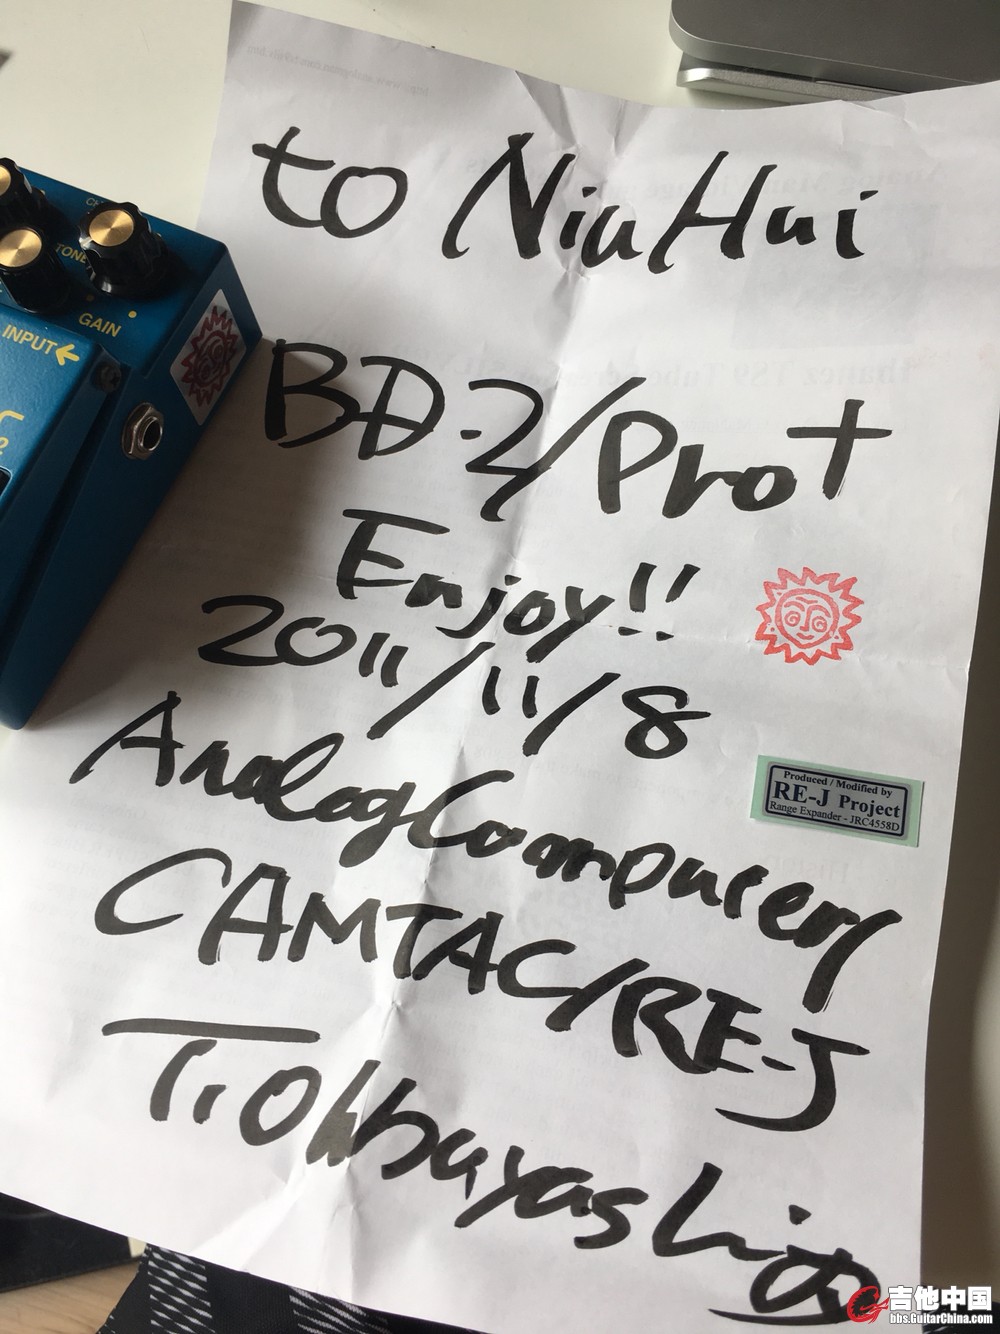 to NiuHui
TONE
GAIN
INPUT
BD-2/Pro+
Enjoy!!
2011/11/8
Produced / Modified by
RE-J Project
Range Expander - JRC4558D
AnalogComputer/
CAMTAC/RE-J
T.Ohbayashi
吉他中国
bbs.GuitarChina.com